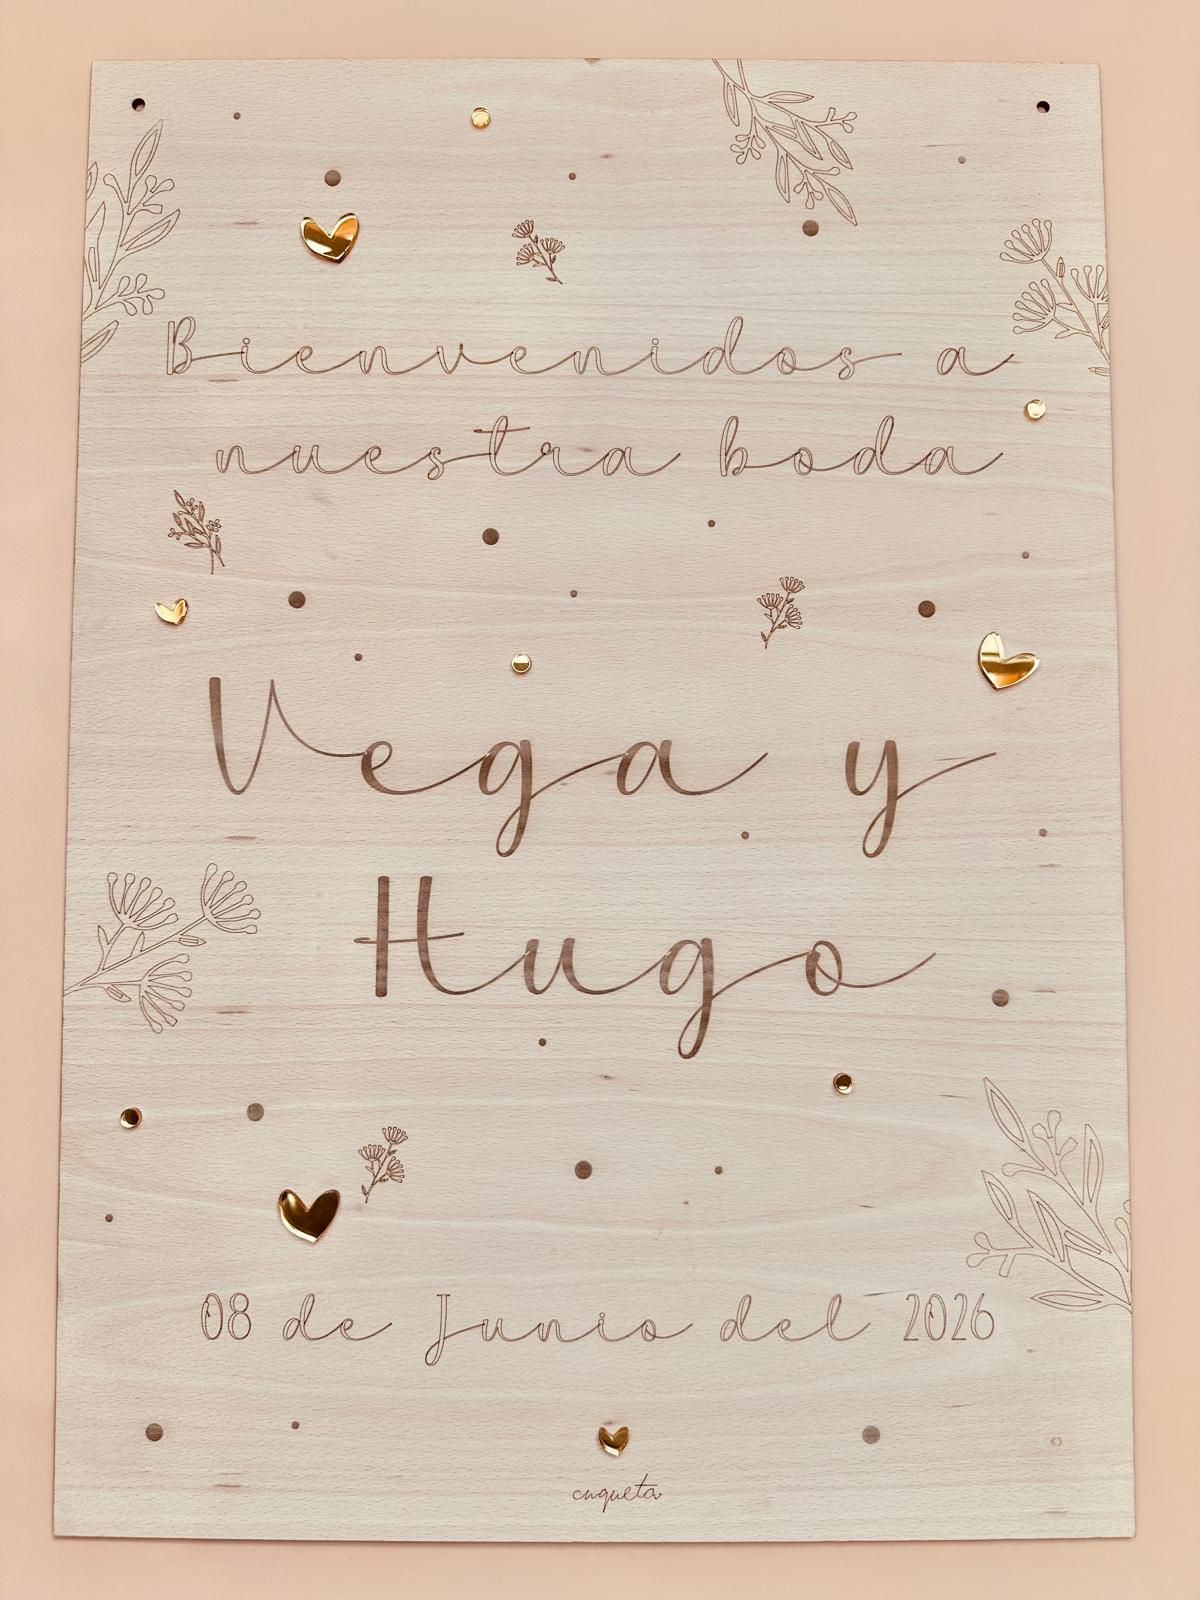 Bienvenidos a
nuestra boda
Vega y
Hugo
08 de Junio del 2026
cuqueta